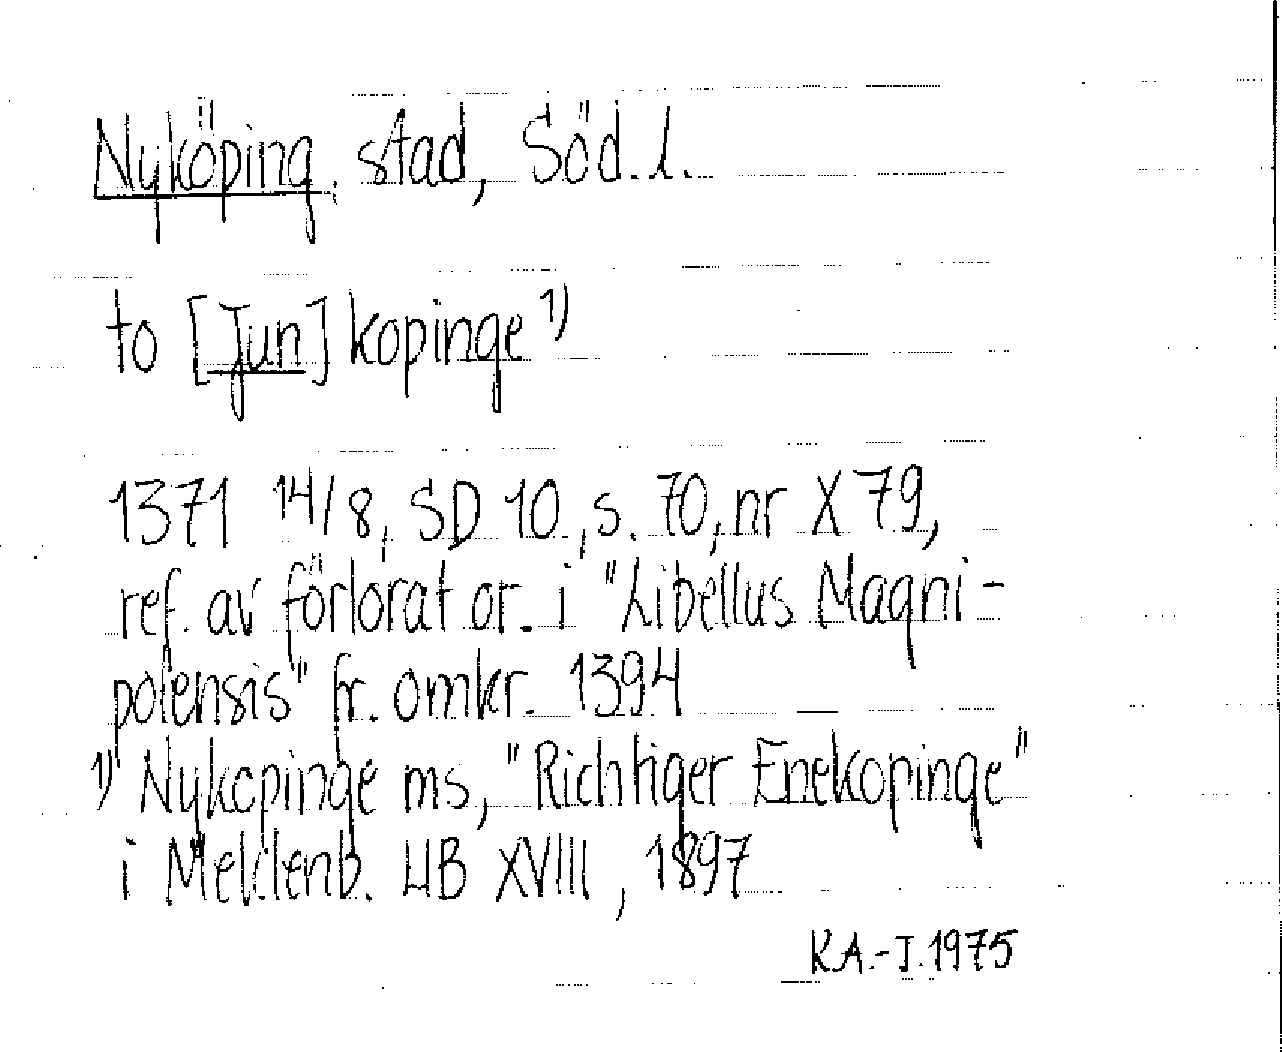 Nyköping, stad, Söd. l.
to [Jun] kopinge 1)
1371 14/8, SD 10, s. 70, nr X 79,
ref. av förlorat or. i "Libellus Magni-
polensis" fr. omkr. 1394
1) Nykopinge ms, "Richtiger Enekopinge"
i Mecklenb. UB XVIII, 1897
K.A.-J. 1975